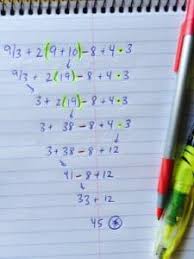 9/3 + 2(9+10) - 8 + 4 · 3
9/3 + 2(19) - 8 + 4 · 3
3 + 2(19) - 8 + 4 · 3
3 + 38 - 8 + 4 · 3
3 + 38 - 8 + 12
41 - 8 + 12
33 + 12
45